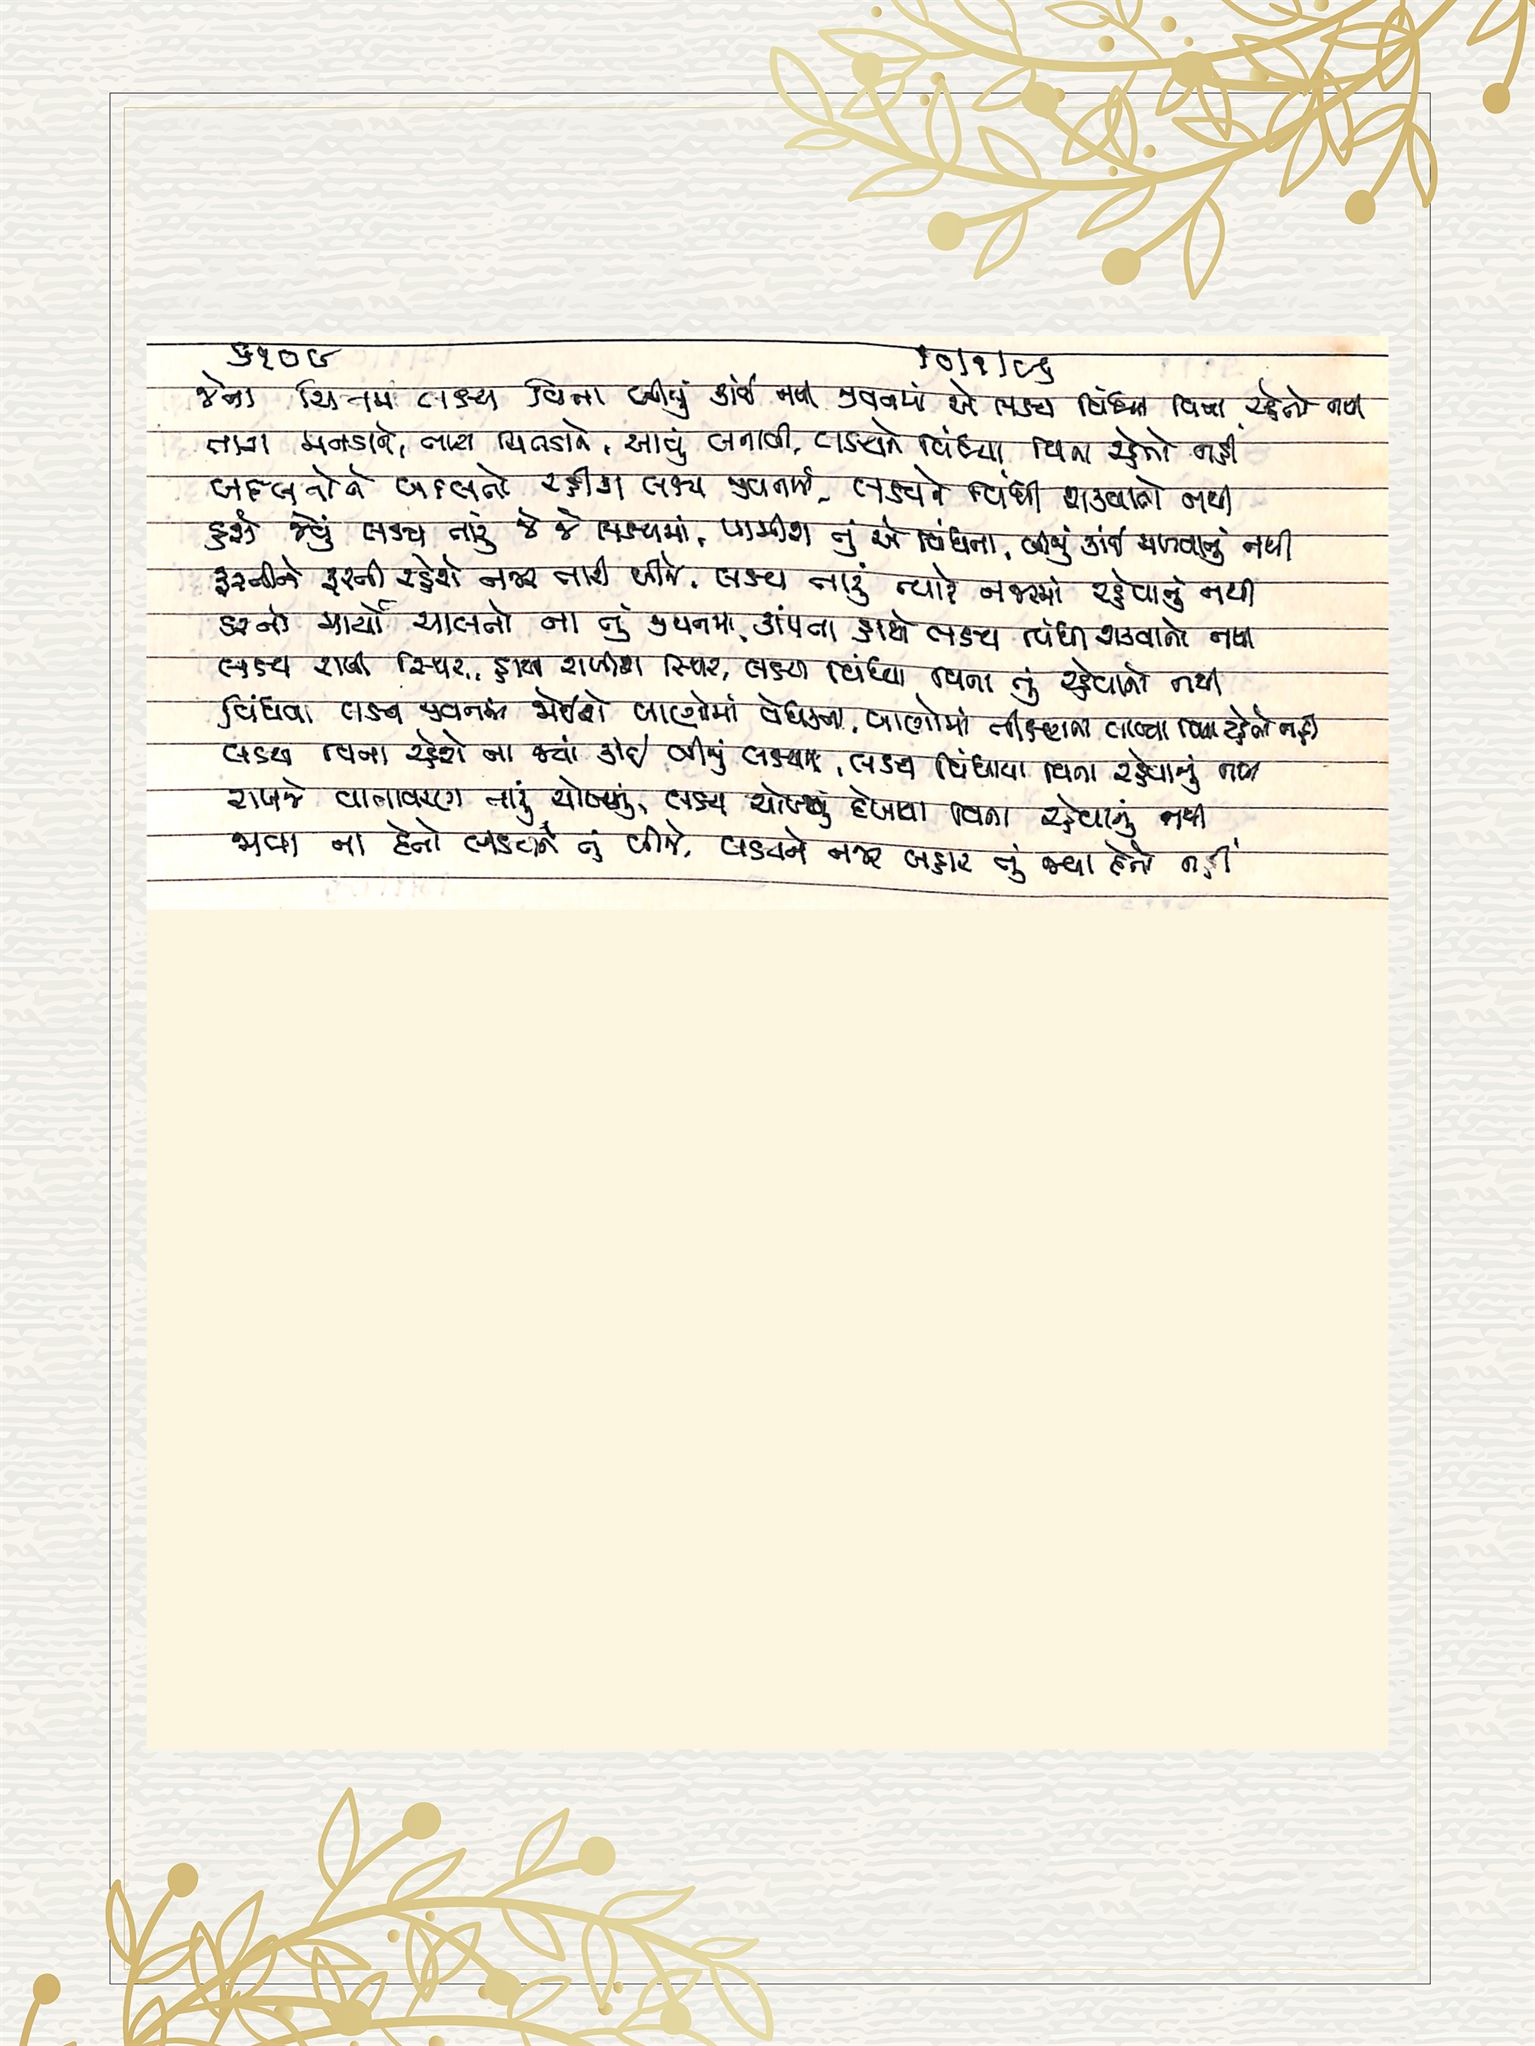 ૬૧૦૯ ૧૦/૧/૯૬
જેના ચિત્તમાં લક્ષ્ય વિના બીજું કાંઈ નથી જીવનમાં એ લક્ષ્ય વિંધ્યા વિના રહેતો નથી
તારા મનડાને, તારા ચિતડાને, આવું બનાવી, લક્ષ્યને વિંધ્યા વિના રહેતો નહીં
બદલતોને બદલતો રહીશ લક્ષ્ય જીવનમાં, લક્ષ્યને વિંધી શકવાનો નથી
હશે જેવું લક્ષ્ય તારું જે જે લક્ષ્યમાં, પામીશ તું એ વિંધતા, બીજું કાંઈ મળવાનું નથી
ફરતીને ફરતી રહેશે નજર તારી બીજે, લક્ષ્ય તારું ત્યારે નજરમાં રહેવાનું નથી
ડરનો માર્યો ચાલતો ના તું જીવનમાં, કાંપતા હાથે લક્ષ્ય વિંધી શકવાનો નથી
લક્ષ્ય રાખી સ્થિર, હાથ રાખીશ સ્થિર, લક્ષ્ય વિંધ્યા વિના તું રહેવાનો નથી
વિંધવા લક્ષ્ય જીવનમાં જોઈશે બાણોમાં વેધકતા, બાણોમાં તીક્ષ્ણતા લાવ્યા વિના રહેતો નહીં
લક્ષ્ય વિના રહેશે ના જ્યાં કોઈ બીજું લક્ષ્યમાં, લક્ષ્ય વિંધાયા વિના રહેવાનું નથી
રાખજે વાતાવરણ તારું ચોખ્ખું, લક્ષ્ય ચોખ્ખું દેખાયા વિના રહેવાનું નથી
જાવા ના દેતો લક્ષ્યને તું બીજે, લક્ષ્યને નજર બહાર તું જાવા દેતો નહીં